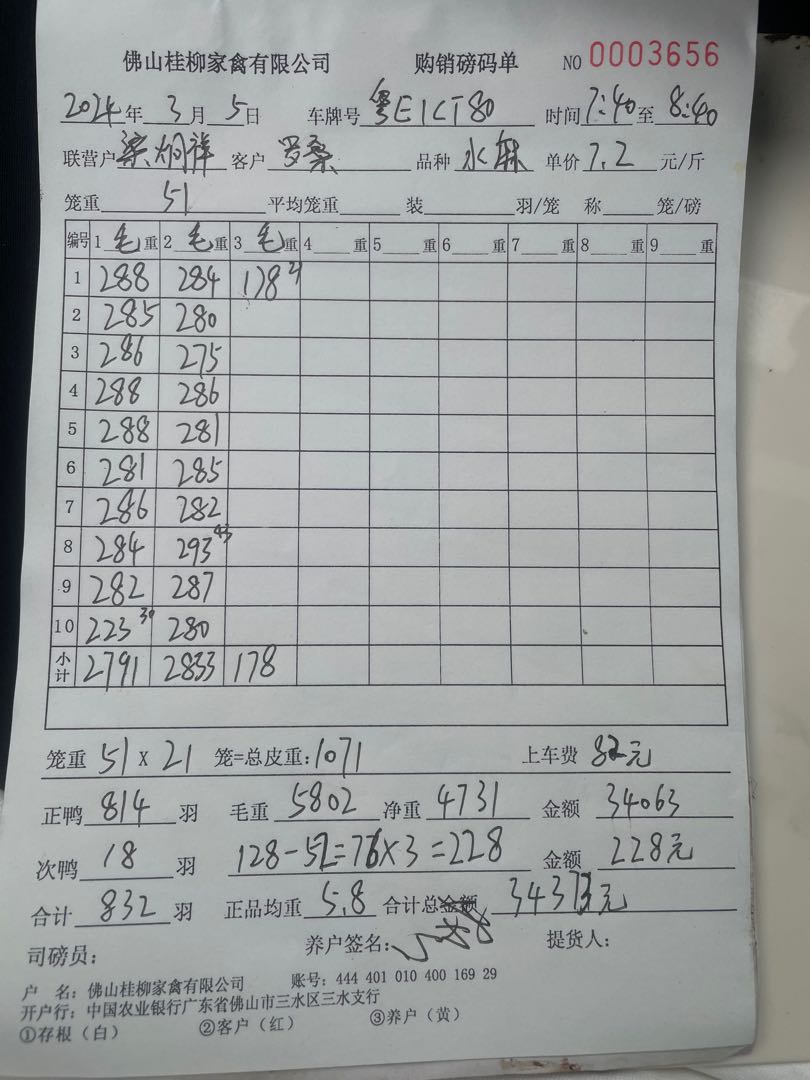 佛山桂柳家禽有限公司 购销磅码单 NO 0003656
2024年3月5日 车牌号 粤E1CT80 时间 7:40至8:40
联营户 梁炳祥 客户 罗桑 品种 水麻 单价 7.2 元/斤
笼重 51 平均笼重 装 羽/笼 称 笼/磅
编号 1 毛重 2 毛重 3 毛重 4 重 5 重 6 重 7 重 8 重 9 重
1 288 284 178 21
2 285 280
3 286 275
4 288 286
5 288 281
6 281 285
7 286 282
8 284 293 43
9 282 287
10 223 30 280
小计 2791 2833 178
笼重 51 X 21 笼=总皮重: 1071 上车费 82元
正鸭 814 羽 毛重 5802 净重 4731 金额 34063
次鸭 18 羽 128-52=76×3=228 金额 228元
合计 832 羽 正品均重 5.8 合计总金额 34373元
司磅员: 养户签名: 提货人:
户 名: 佛山桂柳家禽有限公司 账号: 444 401 010 400 169 29
开户行: 中国农业银行广东省佛山市三水区三水支行
①存根(白) ②客户(红) ③养户(黄)